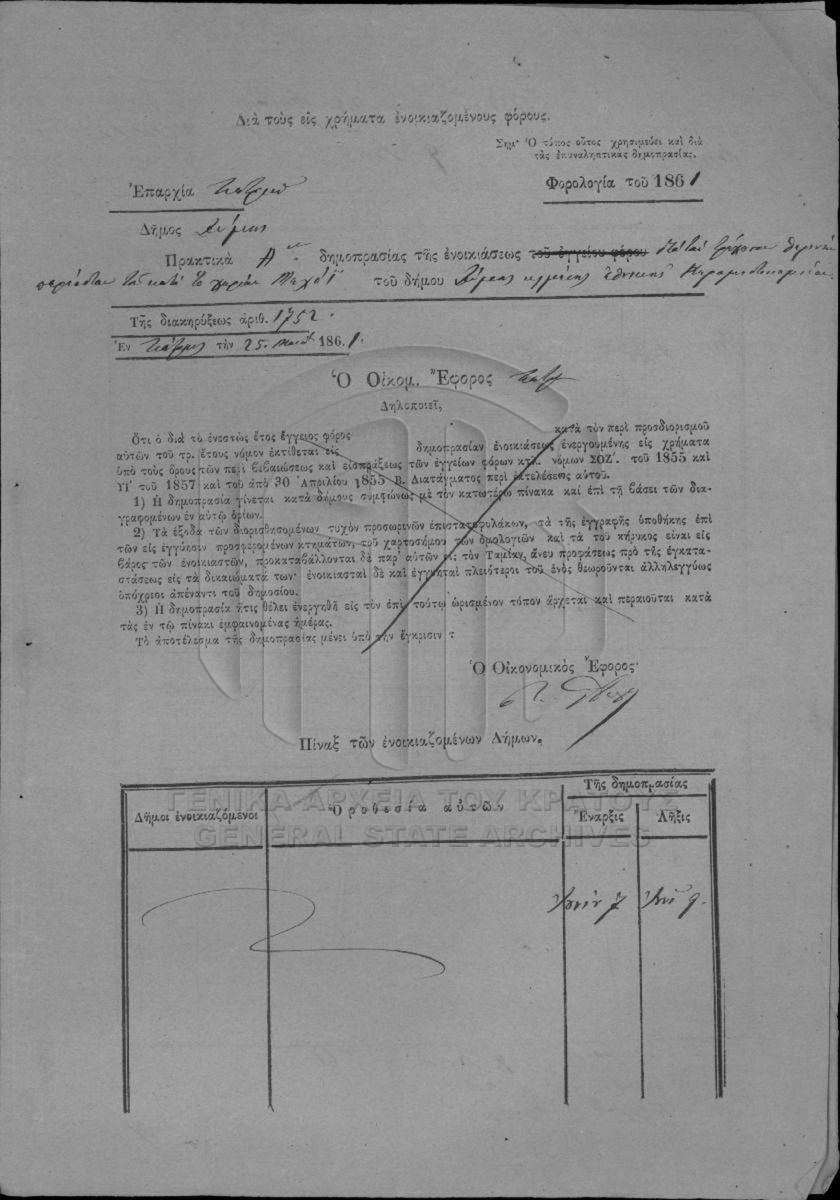 Διὰ τοὺς εἰς χρήματα ἐνοικιαζομένους φόρους.
Σημ· Ὁ τύπος οὗτος χρησιμεύει καὶ διὰ
τὰς ἐπαναληπτικὰς δημοπρασίας.
Ἐπαρχία
Φορολογία τοῦ 1861
Δῆμος Δύμης
Πρακτικὰ Α δημοπρασίας τῆς ἐνοικιάσεως τοῦ ἐγγείου φόρου
τοῦ δήμου Δύμης
Τῆς διακηρύξεως ἀριθ. 1752.
Ἐν τὴν 25. 1861.
Ὁ Οἰκομ. Ἔφορος
Δηλοποιεῖ,
Ὅτι ὁ διὰ τὸ ἐνεστὼς ἔτος ἔγγειος φόρος κατὰ τὸν περὶ προσδιορισμοῦ
αὐτῶν τοῦ τρ. ἔτους νόμον ἐκτίθεται εἰς δημοπρασίαν ἐνοικιάσεως ἐνεργουμένης εἰς χρήματα
ὑπὸ τοὺς ὅρους τῶν περὶ βεβαιώσεως καὶ εἰσπράξεως τῶν ἐγγείων φόρων κτλ. νόμων ΣΟΖ´. τοῦ 1855 καὶ
ΥΓ´ τοῦ 1857 καὶ τοῦ ἀπὸ 30 Ἀπριλίου 1855 Β. Διατάγματος περὶ ἐκτελέσεως αὐτοῦ.
1) Ἡ δημοπρασία γίνεται κατὰ δήμους συμφώνως μὲ τὸν κατωτέρω πίνακα καὶ ἐπὶ τῇ βάσει τῶν δια-
γραφομένων ἐν αὐτῷ ὁρίων.
2) Τὰ ἔξοδα τῶν διορισθησομένων τυχὸν προσωρινῶν ἐπιστατοφυλάκων, τὰ τῆς ἐγγραφῆς ὑποθήκης ἐπὶ
τῶν εἰς ἐγγύησιν προσφερομένων κτημάτων, τοῦ χαρτοσήμου τῶν ὁμολογιῶν καὶ τὰ τοῦ κήρυκος εἶναι εἰς
βάρος τῶν ἐνοικιαστῶν, προκαταβάλλονται δὲ παρ' αὐτῶν εἰς τὸν Ταμίαν, ἄνευ προφάσεως πρὸ τῆς ἐγκατα-
στάσεως εἰς τὰ δικαιώματά των· ἐνοικιασταὶ δὲ καὶ ἐγγυηταὶ πλειότεροι τοῦ ἑνὸς θεωροῦνται ἀλληλεγγύως
ὑπόχρεοι ἀπέναντι τοῦ δημοσίου.
3) Ἡ δημοπρασία ἥτις θέλει ἐνεργηθῆ εἰς τὸν ἐπὶ τούτῳ ὡρισμένον τόπον ἄρχεται καὶ περαιοῦται κατὰ
τὰς ἐν τῷ πίνακι ἐμφαινομένας ἡμέρας.
Τὸ ἀποτέλεσμα τῆς δημοπρασίας μένει ὑπὸ τὴν ἔγκρισιν τ
Ὁ Οἰκονομικὸς Ἔφορος·
Πίναξ τῶν ἐνοικιαζομένων Δήμων.
Τῆς δημοπρασίας
Δῆμοι ἐνοικιαζόμενοι Ὁροθεσία αὐτῶν Ἔναρξις Λῆξις
ΓΕΝΙΚΑ ΑΡΧΕΙΑ ΤΟΥ ΚΡΑΤΟΥΣ
GENERAL STATE ARCHIVES
7 9.